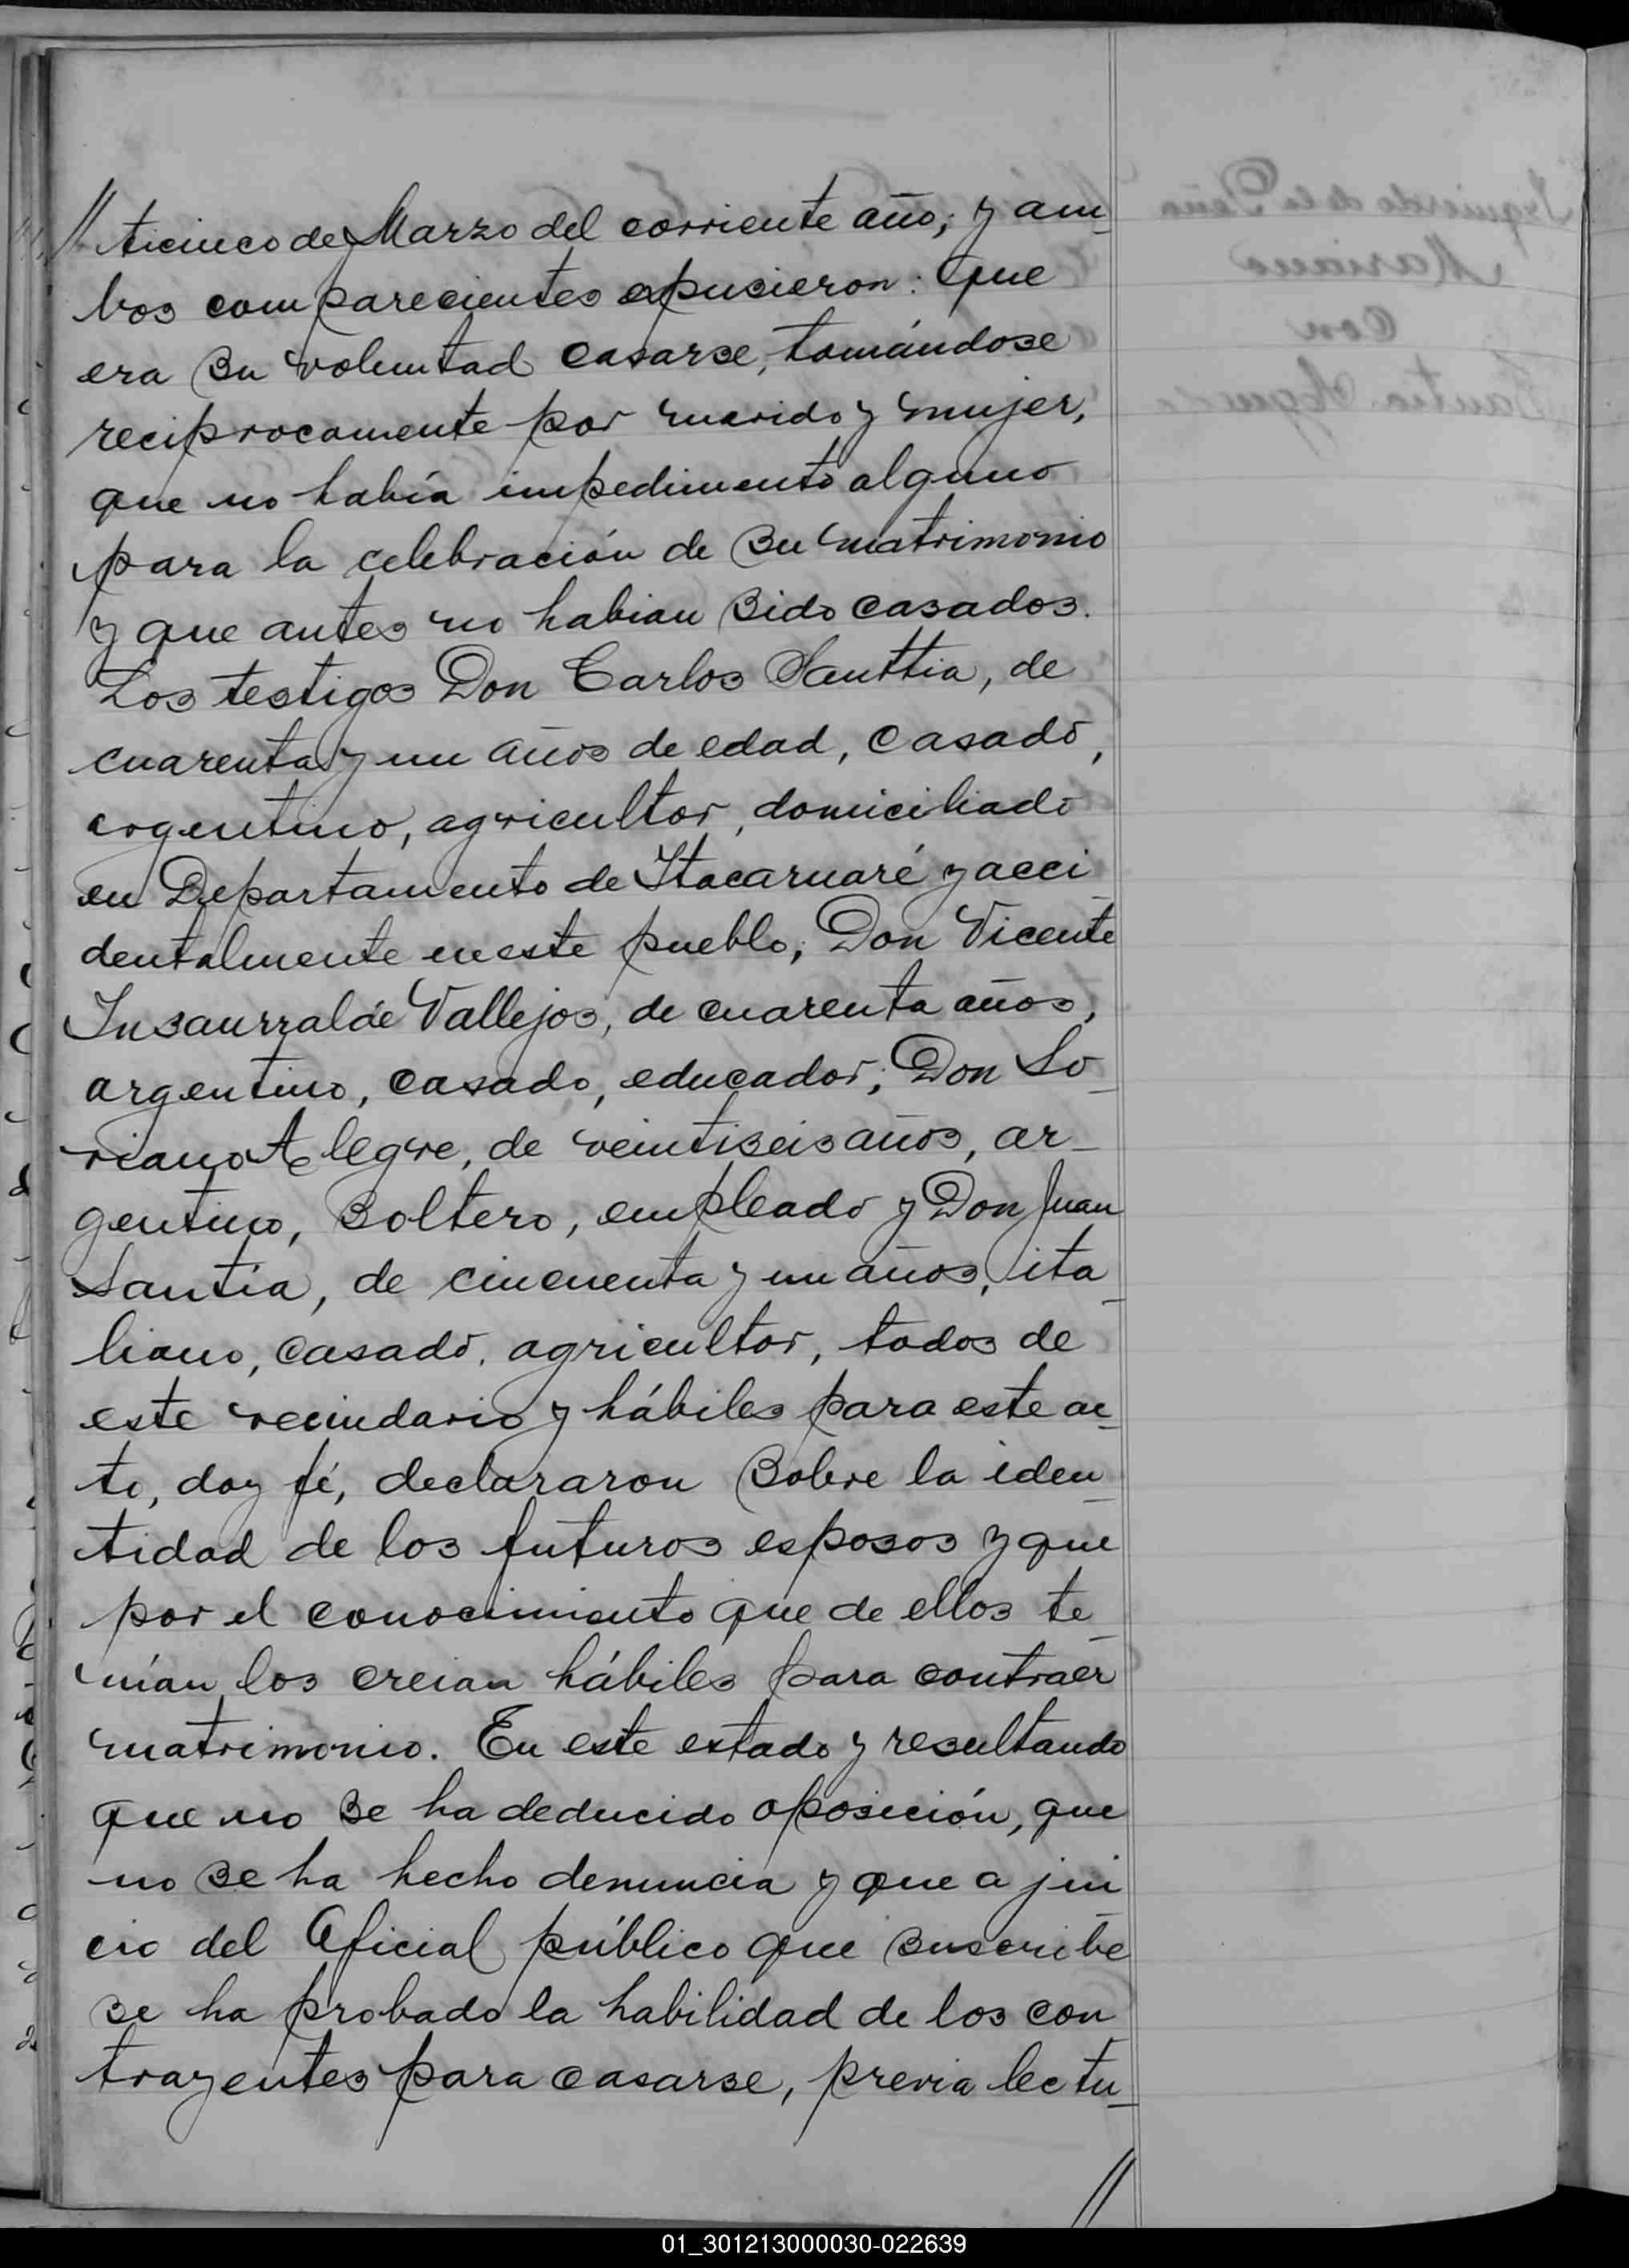 // ticinco de Marzo del corriente año; y am_
bos comparecientes expusieron: Que
era su voluntad casarse, tomándose
reciprocamente por marido y mujer,
que no había impedimento alguno
para la celebración de su matrimonio
y que antes no habian sido casados.
Los testigos Don Carlos Santtia, de
cuarenta y un años de edad, casado,
argentino, agricultor, domiciliado
en Departamento de Itacaruaré y acci_
dentalmente en este pueblo; Don Vicente
Insaurralde Vallejos, de cuarenta años,
argentino, casado, educador; Don Lo_
riano Alegre, de veintiseis años, ar_
gentino, soltero, empleado y Don Juan
Santia, de cincuenta y un años, ita_
liano, casado, agricultor, todos de
este vecindario y hábiles para este ac_
to, doy fé, declararon sobre la iden_
tidad de los futuros esposos y que
por el conocimiento que de ellos te_
nían los creian hábiles para contraer
matrimonio. En este estado y resultando
que no se ha deducido oposición, que
no se ha hecho denuncia y que a jui_
cio del Oficial público que suscribe
se ha probado la habilidad de los con_
trayentes para casarse, previa lectu_
//
Izquierdo de la Peña
Mariano
Con
Santia
01_301213000030-022639